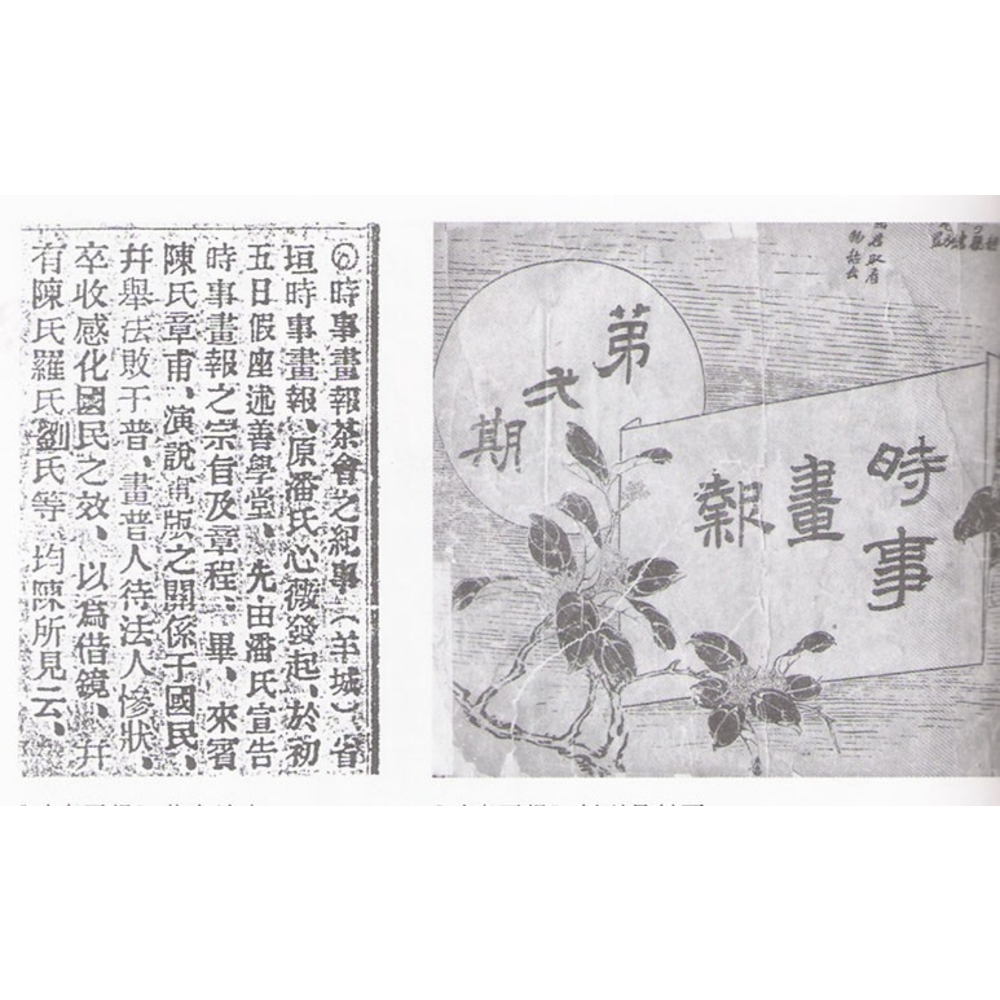 ◎時事畫報茶會之紀事（羊城）省
垣時事畫報、原潘氏心薇發起、於初
五日假座述善學堂、先由潘氏宣告
時事畫報之宗旨及章程、畢、來賓
陳氏章甫、演說 版之關係于國民、
幷舉法敗于普、畫普人待法人慘狀、
卒收感化國民之效、以爲借鏡、幷
有陳氏羅氏劉氏等 均陳所見云、
第弍期
時事
畫
報